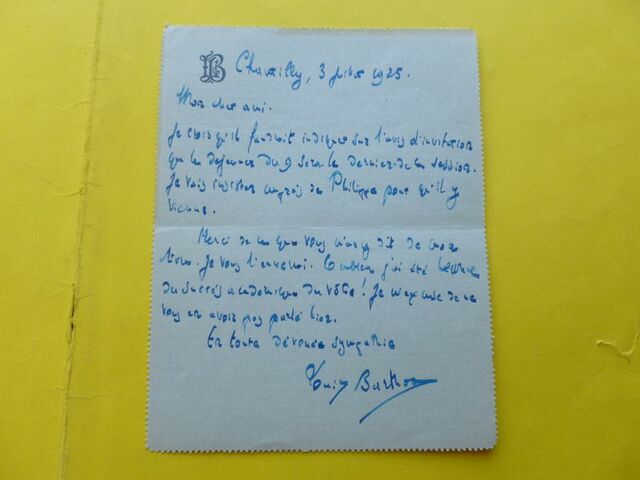 LB Chantilly, 3 juillet 1925.
Mon cher ami.
Je crois qu'il faudrait indiquer sur l'avis d'invitation
que le déjeuner du 9 sera le dernier de la session.
Je vais insister auprès de Philippe pour qu'il y
vienne.
Merci de ce que vous m'avez dit de mon
livre. Je vous l'enverrai. Combien j'ai été heureux
du succès académique du vôtre ! Je m'excuse de ne
vous en avoir pas parlé hier.
En toute dévouée sympathie
Louis Barthou